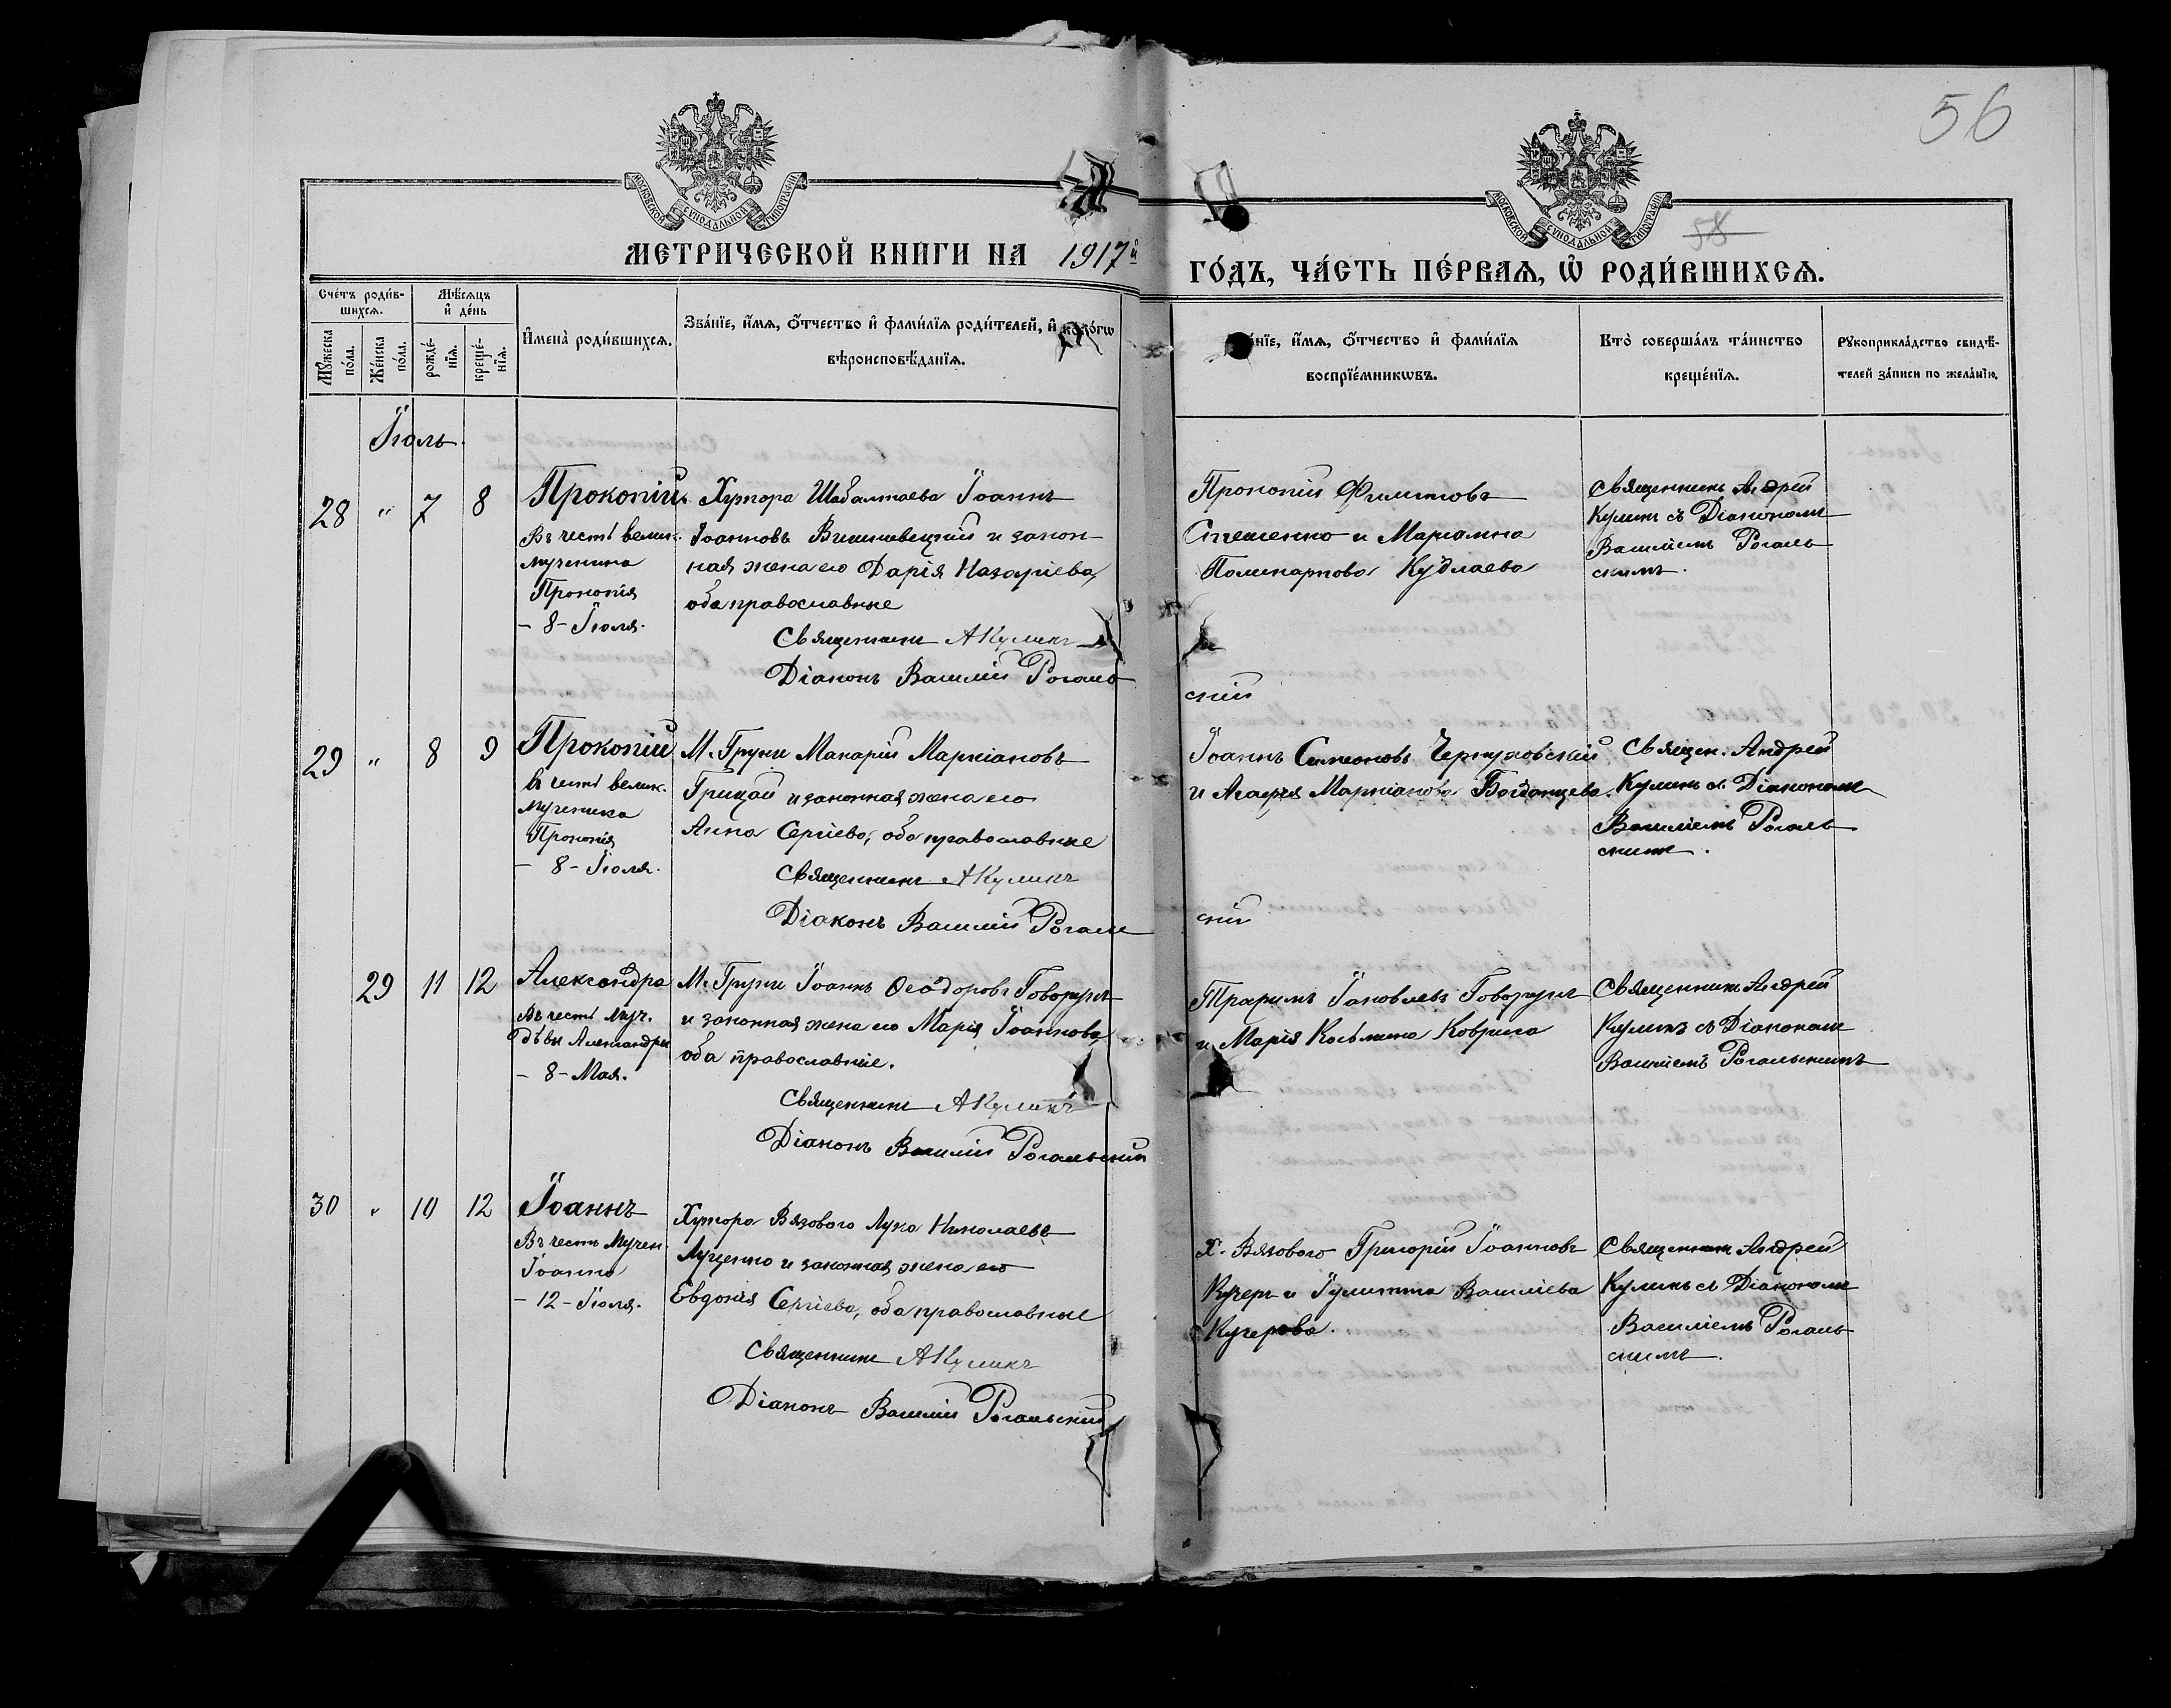 56
МОСКОВСКОЙ СѴНОДАЛЬНОЙ ТИПОГРАФІИ
МОСКОВСКОЙ СѴНОДАЛЬНОЙ ТИПОГРАФІИ
58
МЕТРИЧЕСКОЙ КНИГИ НА 1917й
ГО́ДЪ, ЧА́СТЬ ПЕ́РВАѦ, Ѡ҆ РОДИ́ВШИХСѦ.
Сче́тъ роди́в-
шихсѧ.
Мꙋ́жеска по́ла.
Же́нска по́ла.
Мѣ́сѧцъ
и҆ де́нь
рожде́-
нїѧ.
креще́-
нїѧ.
И҆мена̀ роди́вшихсѧ.
Зва́нїе, и҆́мѧ, ѻ҆́тчество и҆ фами́лїѧ роди́телей, и҆ како́гѡ
вѣроисповѣ́данїѧ.
Зва́нїе, и҆́мѧ, ѻ҆́тчество и҆ фами́лїѧ
воспрїе́мникѡвъ.
Кто̀ соверша́лъ та́инство
креще́нїѧ.
Рꙋкоприкла́дство свидѣ́-
телей за́писи по жела́нїю.
Іюль.
28 " 7 8
Прокопій
Въ честь велик.
мученика
Прокопія
- 8 - Іюля.
Хутора Шабалтаева Іоаннъ
Іоанновъ Вишневецкій и закон
ная жена его Дарія Назаріева,
оба православные
Священникъ АКуликъ
Діаконъ Василій Рогаль
скій
Прокопій Филиповъ
и Маріамна
Поликарпова Кудлаева
Священникъ Андрей
Куликъ съ Діакономъ
Василіемъ Рогаль
скимъ.
29 " 8 9
Прокопій
въ честь велик.
мученика
Прокопія
- 8 - Іюля.
М. Груни Макарій Маркіановъ
Грицай и законная жена его
Анна Сергіева, оба православные
Священникъ АКуликъ
Діаконъ Василій Рогаль
скій
Іоаннъ Симеоновъ
и Агафія Маркіанова Богданцева.
Священ. Андрей
Куликъ съ Діакономъ
Василіемъ Рогаль
скимъ.
29 11 12
Александра
Въ честь муч.
дѣвы Александры
- 8 - Мая.
М. Груни Іоаннъ Ѳеодоровъ Говорунъ
и законная жена его Марія Іоаннова,
оба православные.
Священникъ АКуликъ
Діаконъ Василій Рогальскій
Іаковлевъ Говорунъ
и Марія Косьмина Коврига
Священникъ Андрей
Куликъ съ Діакономъ
Василіемъ Рогальскимъ
30 " 10 12
Іоаннъ
Въ честь Мучен.
Іоанна
- 12 - Іюля.
Хутора Вязового Лука Николаевъ
Луценко и законная жена его
Евдокія Сергіева, оба православные
Священникъ АКуликъ
Діаконъ Василій Рогальскій
Х. Вязового Григорій Іоанновъ
Кучеръ и Іулитта Василіева
Кучерова.
Священникъ Андрей
Куликъ съ Діакономъ
Василіемъ Рогаль
скимъ.